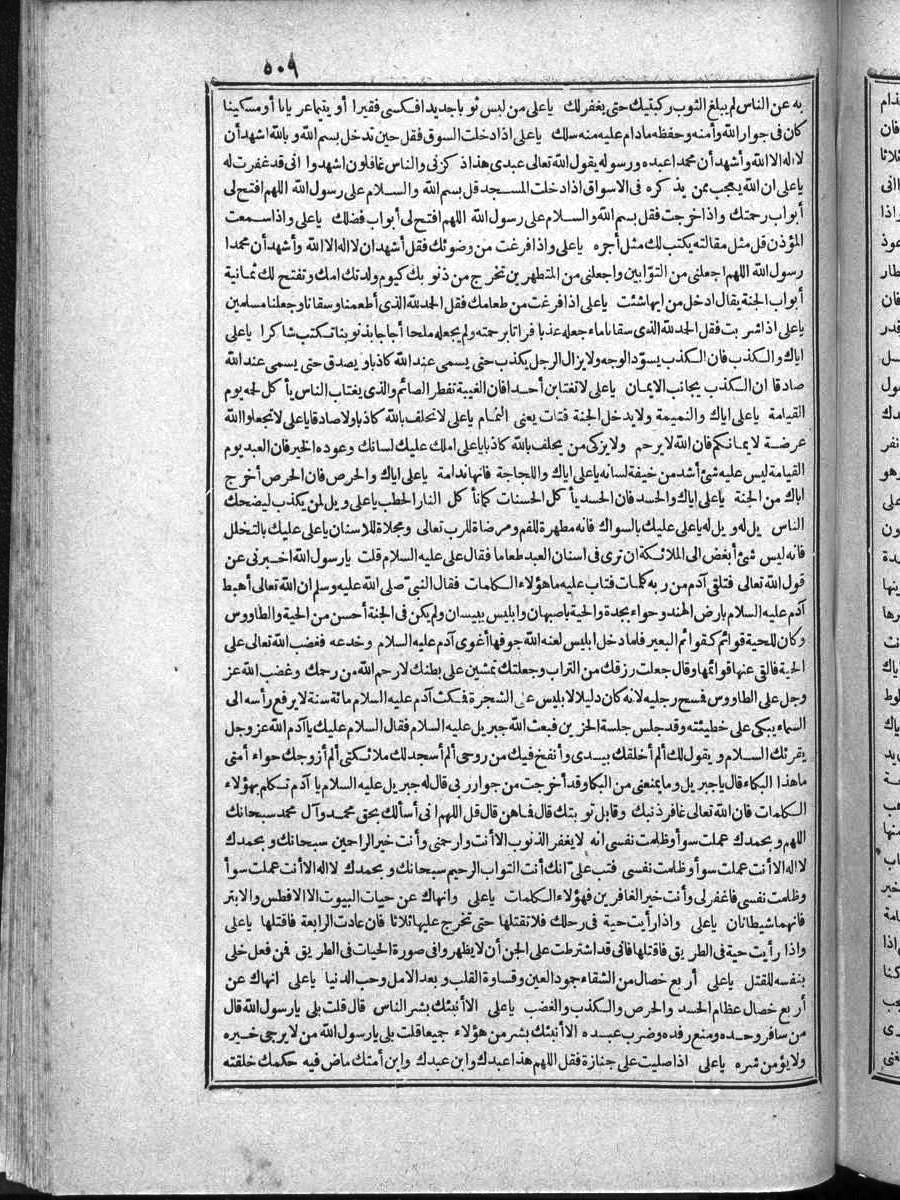 ٥٠٩
به عن الناس لم يبلغ الثوب ركبتيك حتى يغفر لك ياعلى من لبس ثوبا جديدا فكسى فقيرا أو يتيما عريانا أو مسكينا
كان فى جوار الله وأمنه وحفظه مادام عليه منه سلك ياعلى اذا دخلت السوق فقل حين تدخل بسم الله وبالله اشهد أن
لا اله الا الله وأشهد أن محمدا عبده ورسوله يقول الله تعالى عبدى هذا ذكرنى والناس غافلون اشهدوا انى قد غفرت له
ياعلى ان الله يعجب ممن يذكره فى الاسواق اذا دخلت المسجد قل بسم الله والسلام على رسول الله اللهم افتح لى
أبواب رحمتك واذا خرجت فقل بسم الله والسلام على رسول الله اللهم افتح لى أبواب فضلك ياعلى واذا سمعت
المؤذن قل مثل مقالته يكتب لك مثل أجره ياعلى واذا فرغت من وضوئك فقل أشهد ان لا اله الا الله وأشهد أن محمدا
رسول الله اللهم اجعلنى من التوابين واجعلنى من المتطهرين تخرج من ذنوبك كيوم ولدتك امك وتفتح لك ثمانية
أبواب الجنة يقال ادخل من ايها شئت ياعلى اذا فرغت من طعامك فقل الحد لله الذى أطعمنا وسقانا وجعلنا مسلمين
ياعلى اذا شربت فقل الحد لله الذى سقانا ماء جعله عذبا فراتا برحمته ولم يجعله ملحا أجاجا بذنوبنا تكتب شاكرا ياعلى
اياك والكذب فان الكذب يسود الوجه ولا يزال الرجل يكذب حتى يسمى عند الله كاذبا ويصدق حتى يسمى عند الله
صادقا ان الكذب يجانب الايمان ياعلى لا تغتابن أحدا فان الغيبة تفطر الصائم والذى يغتاب الناس يأكل لحه يوم
القيامة ياعلى اياك والنميمة ولا يدخل الجنة قتات يعنى النمام ياعلى لا تحلف بالله كاذبا ولا صادقا ياعلى لا تجعلوا الله
عرضة لايمانكم فان الله لا يرحم ولا يزكى من يحلف بالله كاذبا ياعلى املك عليك لسانك وعوده الخير فان العبد يوم
القيامة ليس عليه شئ أشد من خيفة لسانه ياعلى اياك واللجاجة فانها ندامة ياعلى اياك والحرص فان الحرص أخرج
اباك من الجنة ياعلى اياك والحسد فان الحسد يأكل الحسنات كما تأكل النار الحطب ياعلى ويل لمن يكذب ليضحك
الناس ويل له ويل له ياعلى عليك بالسواك فانه مطهرة للفم ومرضاة للرب تعالى ومجلاة للاسنان ياعلى عليك بالتخلل
فانه ليس شئ أبغض الى الملائكة ان ترى فى اسنان العبد طعاما فقال على عليه السلام قلت يارسول الله اخبرنى عن
قول الله تعالى فتلقى آدم من ربه كلمات فتاب عليه ما هؤلاء الكلمات فقال النبى صلى الله عليه وسلم ان الله تعالى أهبط
آدم عليه السلام بارض الهند وحواء بجدة والحية باصبهان وابليس ببيسان ولم يكن فى الجنة أحسن من الحية والطاووس
وكان للحية قوائم كقوائم البعير فلما دخل ابليس لعنه الله جوفها أغوى آدم عليه السلام وخدعه فغضب الله تعالى على
الحية فالقى عنها قوائمها وقال جعلت رزقك من التراب وجعلتك تمشين على بطنك لارحم الله من رحمك وغضب الله عز
وجل على الطاووس فسخ رجليه لانه كان دليلا لابليس على الشجرة فمكث آدم عليه السلام مائة سنة لا يرفع رأسه الى
السماء يبكى على خطيئته وقد جلس جلسة الحزين فبعث الله جبريل عليه السلام فقال السلام عليك يا آدم الله عز وجل
يقرئك السلام ويقول لك ألم أخلقك بيدى وأنفخ فيك من روحى ألم أسجد لك ملائكتى ألم أزوجك حواء أمتى
ما هذا البكاء قال ياجبريل وما يمنعنى من البكا وقد أخرجت من جوار ربى قال له جبريل عليه السلام يا آدم تكلم بهؤلاء
الكلمات فان الله تعالى غافر ذنبك وقابل توبتك قال فما هن قال قل اللهم انى أسألك بحق محمد وآل محمد سبحانك
اللهم وبحمدك عملت سوأ وظلمت نفسى انه لا يغفر الذنوب الا أنت وارحمنى وأنت خير الراحمين سبحانك وبحمدك
لا اله الا أنت عملت سوأ وظلمت نفسى فتب على انك أنت التواب الرحيم سبحانك وبحمدك لا اله الا أنت عملت سوأ
وظلمت نفسى فاغفر لى وأنت خير الغافرين فهؤلاء الكلمات ياعلى وانهاك عن حيات البيوت الا الافطس والابتر
فانهما شيطانان ياعلى واذا رأيت حية فى رحلك فلا تقتلها حتى تخرج عليها ثلاثا فان عادت الرابعة فاقتلها ياعلى
واذا رأيت حية فى الطريق فاقتلها فانى قد اشترطت على الجن أن لا يظهروا فى صورة الحيات فى الطريق فمن فعل خلى
بنفسه للقتل ياعلى أربع خصال من الشقاء جمود العين وقساوة القلب وبعد الامل وحب الدنيا ياعلى انهاك عن
أربع خصال عظام الحسد والحرص والكذب والغضب ياعلى الا أنبئك بشر الناس قال قلت بلى يارسول الله قال
من سافر وحده ومنع رفده وضرب عبده الا أنبئك بشر من هؤلاء جميعا قلت بلى يارسول الله من لا يرجى خيره
ولا يؤمن شره ياعلى اذا صليت على جنازة فقل اللهم هذا عبدك وابن عبدك وابن أمتك ماض فيه حكمك خلقته